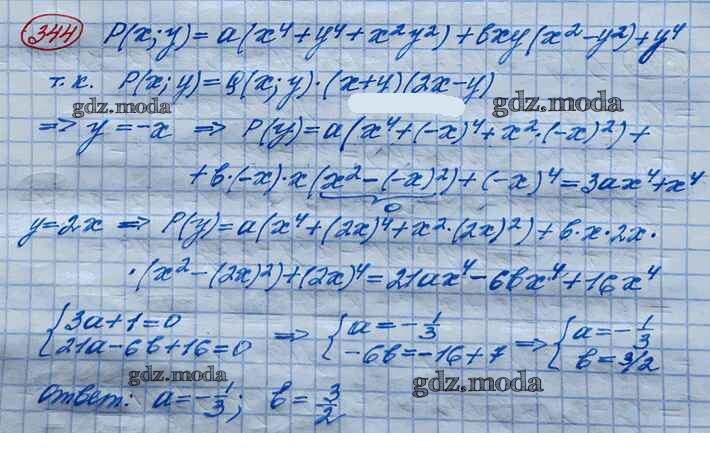 344 P(x;y)=a(x⁴+y⁴+x²y²)+bxy(x²-y²)+y⁴
т.к. P(x;y)=Q(x;y)·(x+y)(2x-y)
gdz.moda gdz.moda
=> y=-x => P(y)=a(x⁴+(-x)⁴+x²·(-x)²)+
+b·(-x)·x(x²-(-x)²)+(-x)⁴=3ax⁴+x⁴
0
y=2x => P(y)=a(x⁴+(2x)⁴+x²·(2x)²)+b·x·2x·
·(x²-(2x)²)+(2x)⁴=21ax⁴-6bx⁴+16x⁴
{3a+1=0 => {a=-1/3 => {a=-1/3
21a-6b+16=0 -6b=-16+7 b=3/2
gdz.moda gdz.moda
Ответ: a=-1/3; b=3/2